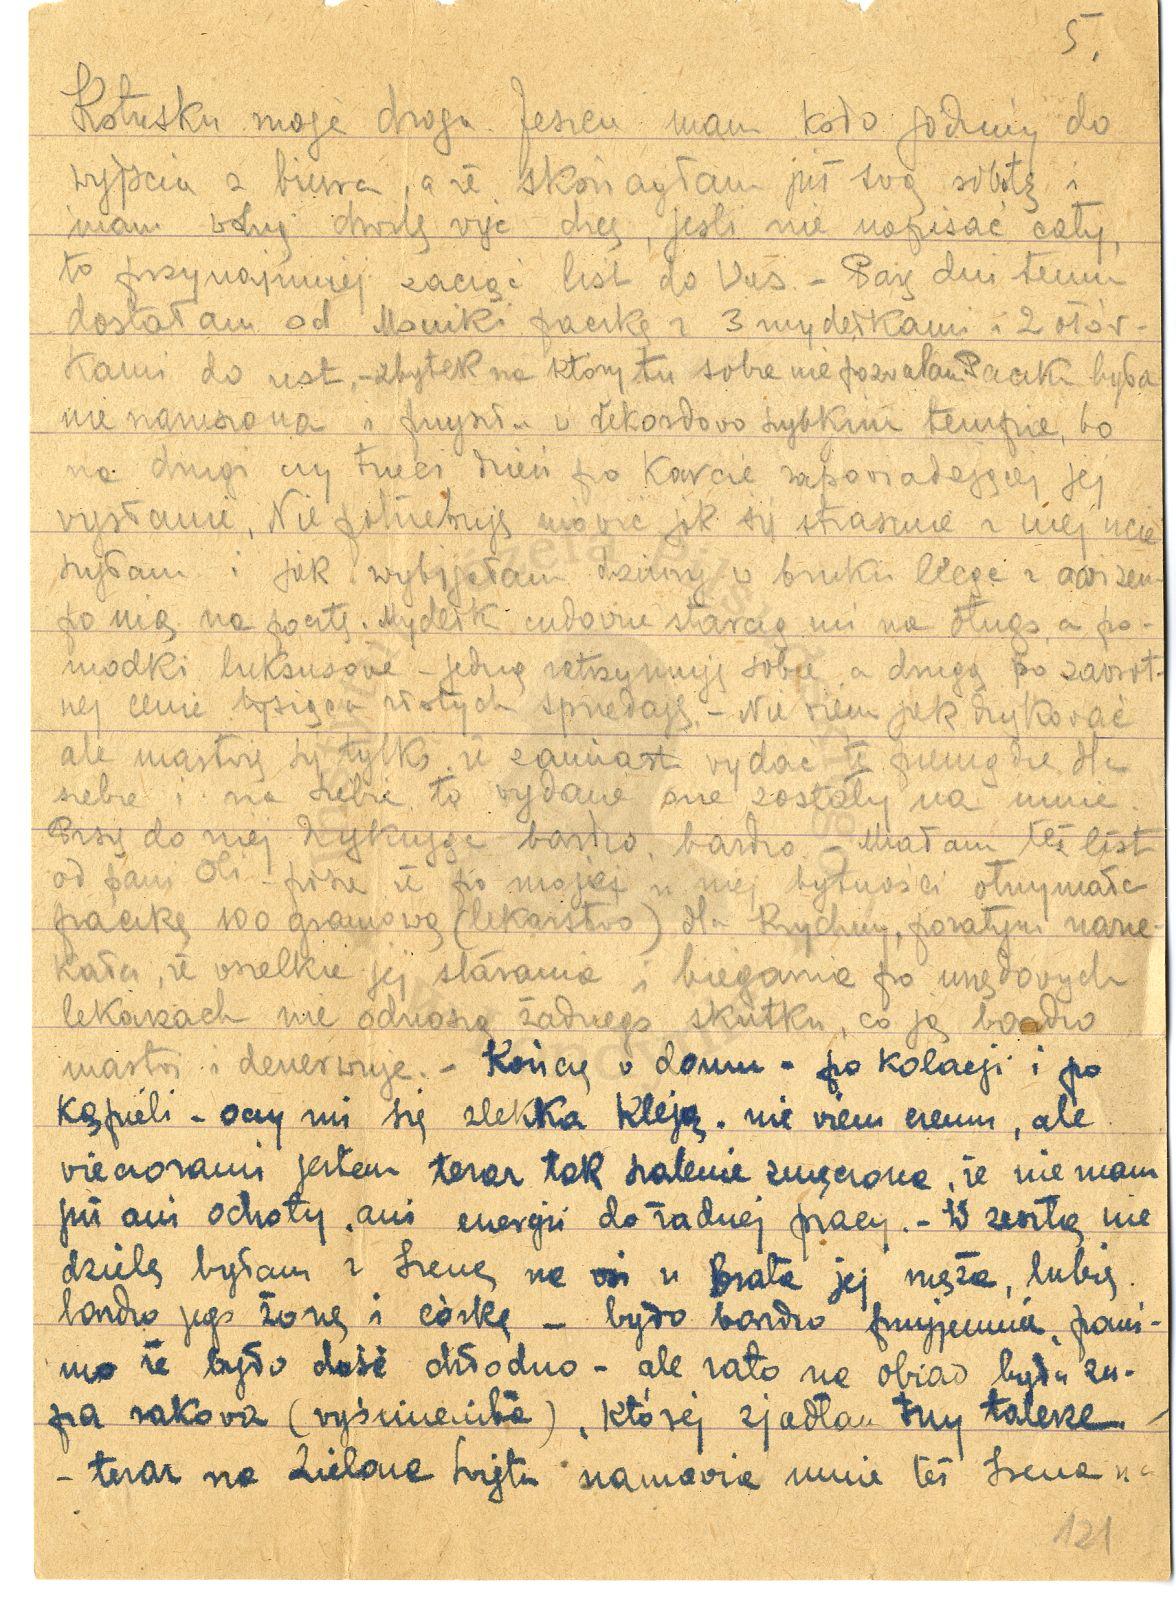 5.
Kotusku moje drogu. Jeszcu mam koło godziny do
wyjścia z biura, a że skończyłam już swą robotę i
mam wolną chwilę więc chcę, jeśli nie napisać cały,
to przynajmniej zacząć list do Was. - Parę dni temu
dostałam od Moniki paczkę z 3 mydełkami i 2 ołów-
kami do ust, - zbytek na który tu sobie nie pozwalam. Paczka była
nie naruszona i przyszła w rekordowo szybkim tempie, bo
na drugi czy trzeci dzień po karcie zapowiadającej jej
wysłanie. Nie potrzebuję mówić jak się strasznie z niej ucie
szyłam i jak wybijałam dziury w bruku lecąc z awizem
po nią na pocztę. Mydełk cudowne starczą mi na długo, a po-
madki luksusowe - jedną zatrzymuję sobie, a drugą po zawrot-
nej cenie tysiąca złotych sprzedaję. - Nie wiem jak dziękować
ale martwię się tylko, że zamiast wydać te pieniądze dla
siebie i na siebie, to wydane one zostały na mnie.
Piszę do niej dziękując bardzo, bardzo. - Miałam też list
od pani Oli - pisze że po mojej u niej bytności otrzymała
paczkę 100 gramową (lekarstwo) dla Krychny, poza tym narze-
kała, że wszelkie jej starania i bieganie po urzędowych
lekarzach nie odnoszą żadnego skutku, co ją bardzo
martwi i denerwuje. - Kończę w domu - po kolacji i po
kąpieli - oczy mi się zlekka kleją. nie wiem czemu, ale
wieczorami jestem teraz tak szalenie zmęczona, że nie mam
już ani ochoty, ani energii do żadnej pracy. - W zeszłą nie
dzielę byłam z Ireną na wsi u brata jej męża, lubię
bardzo jego żonę i córkę - było bardzo przyjemnie, pomi-
mo że było dość chłodno - ale zato na obiad była zu-
pa rakowa (wyśmienita), której zjadłam trzy talerze
- teraz na Zielone Święta namawia mnie też Irena na
121